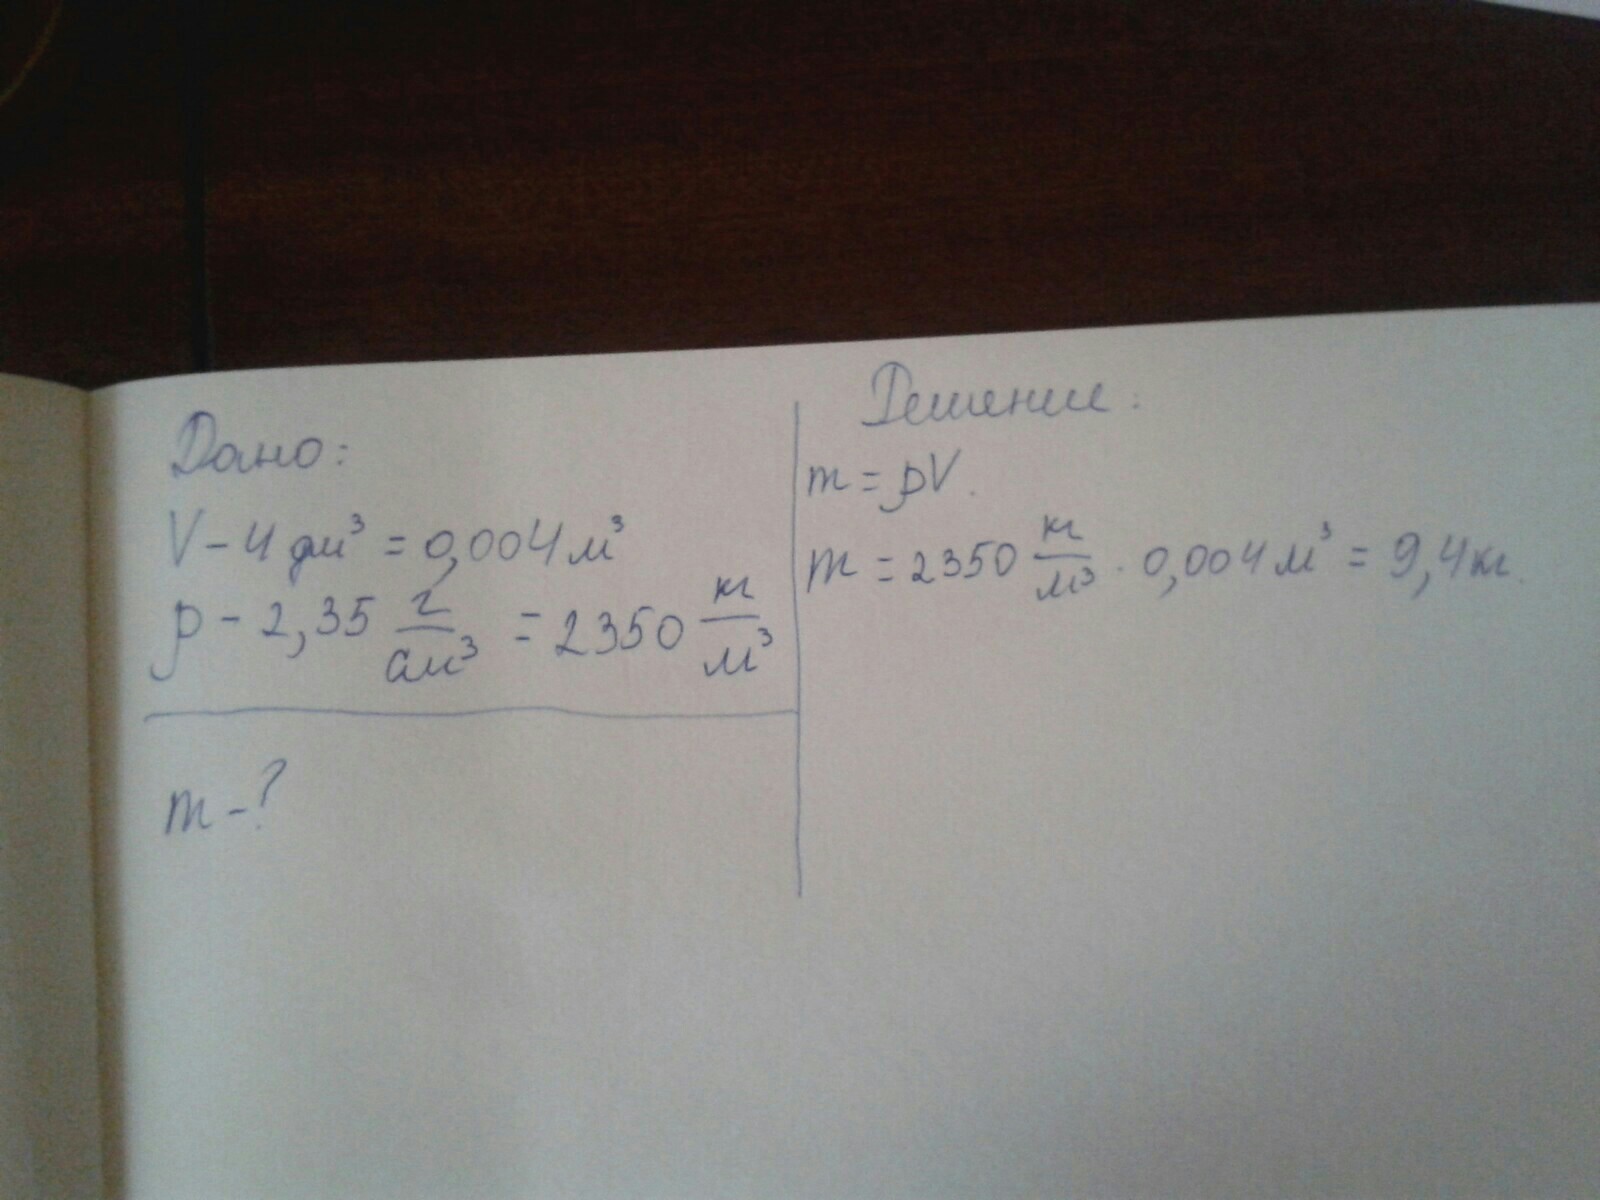 Дано:
V - 4 дм³ = 0,004 м³
ρ - 2,35 г/см³ = 2350 кг/м³
m - ?
Решение:
m = ρV.
m = 2350 кг/м³ · 0,004 м³ = 9,4 кг.